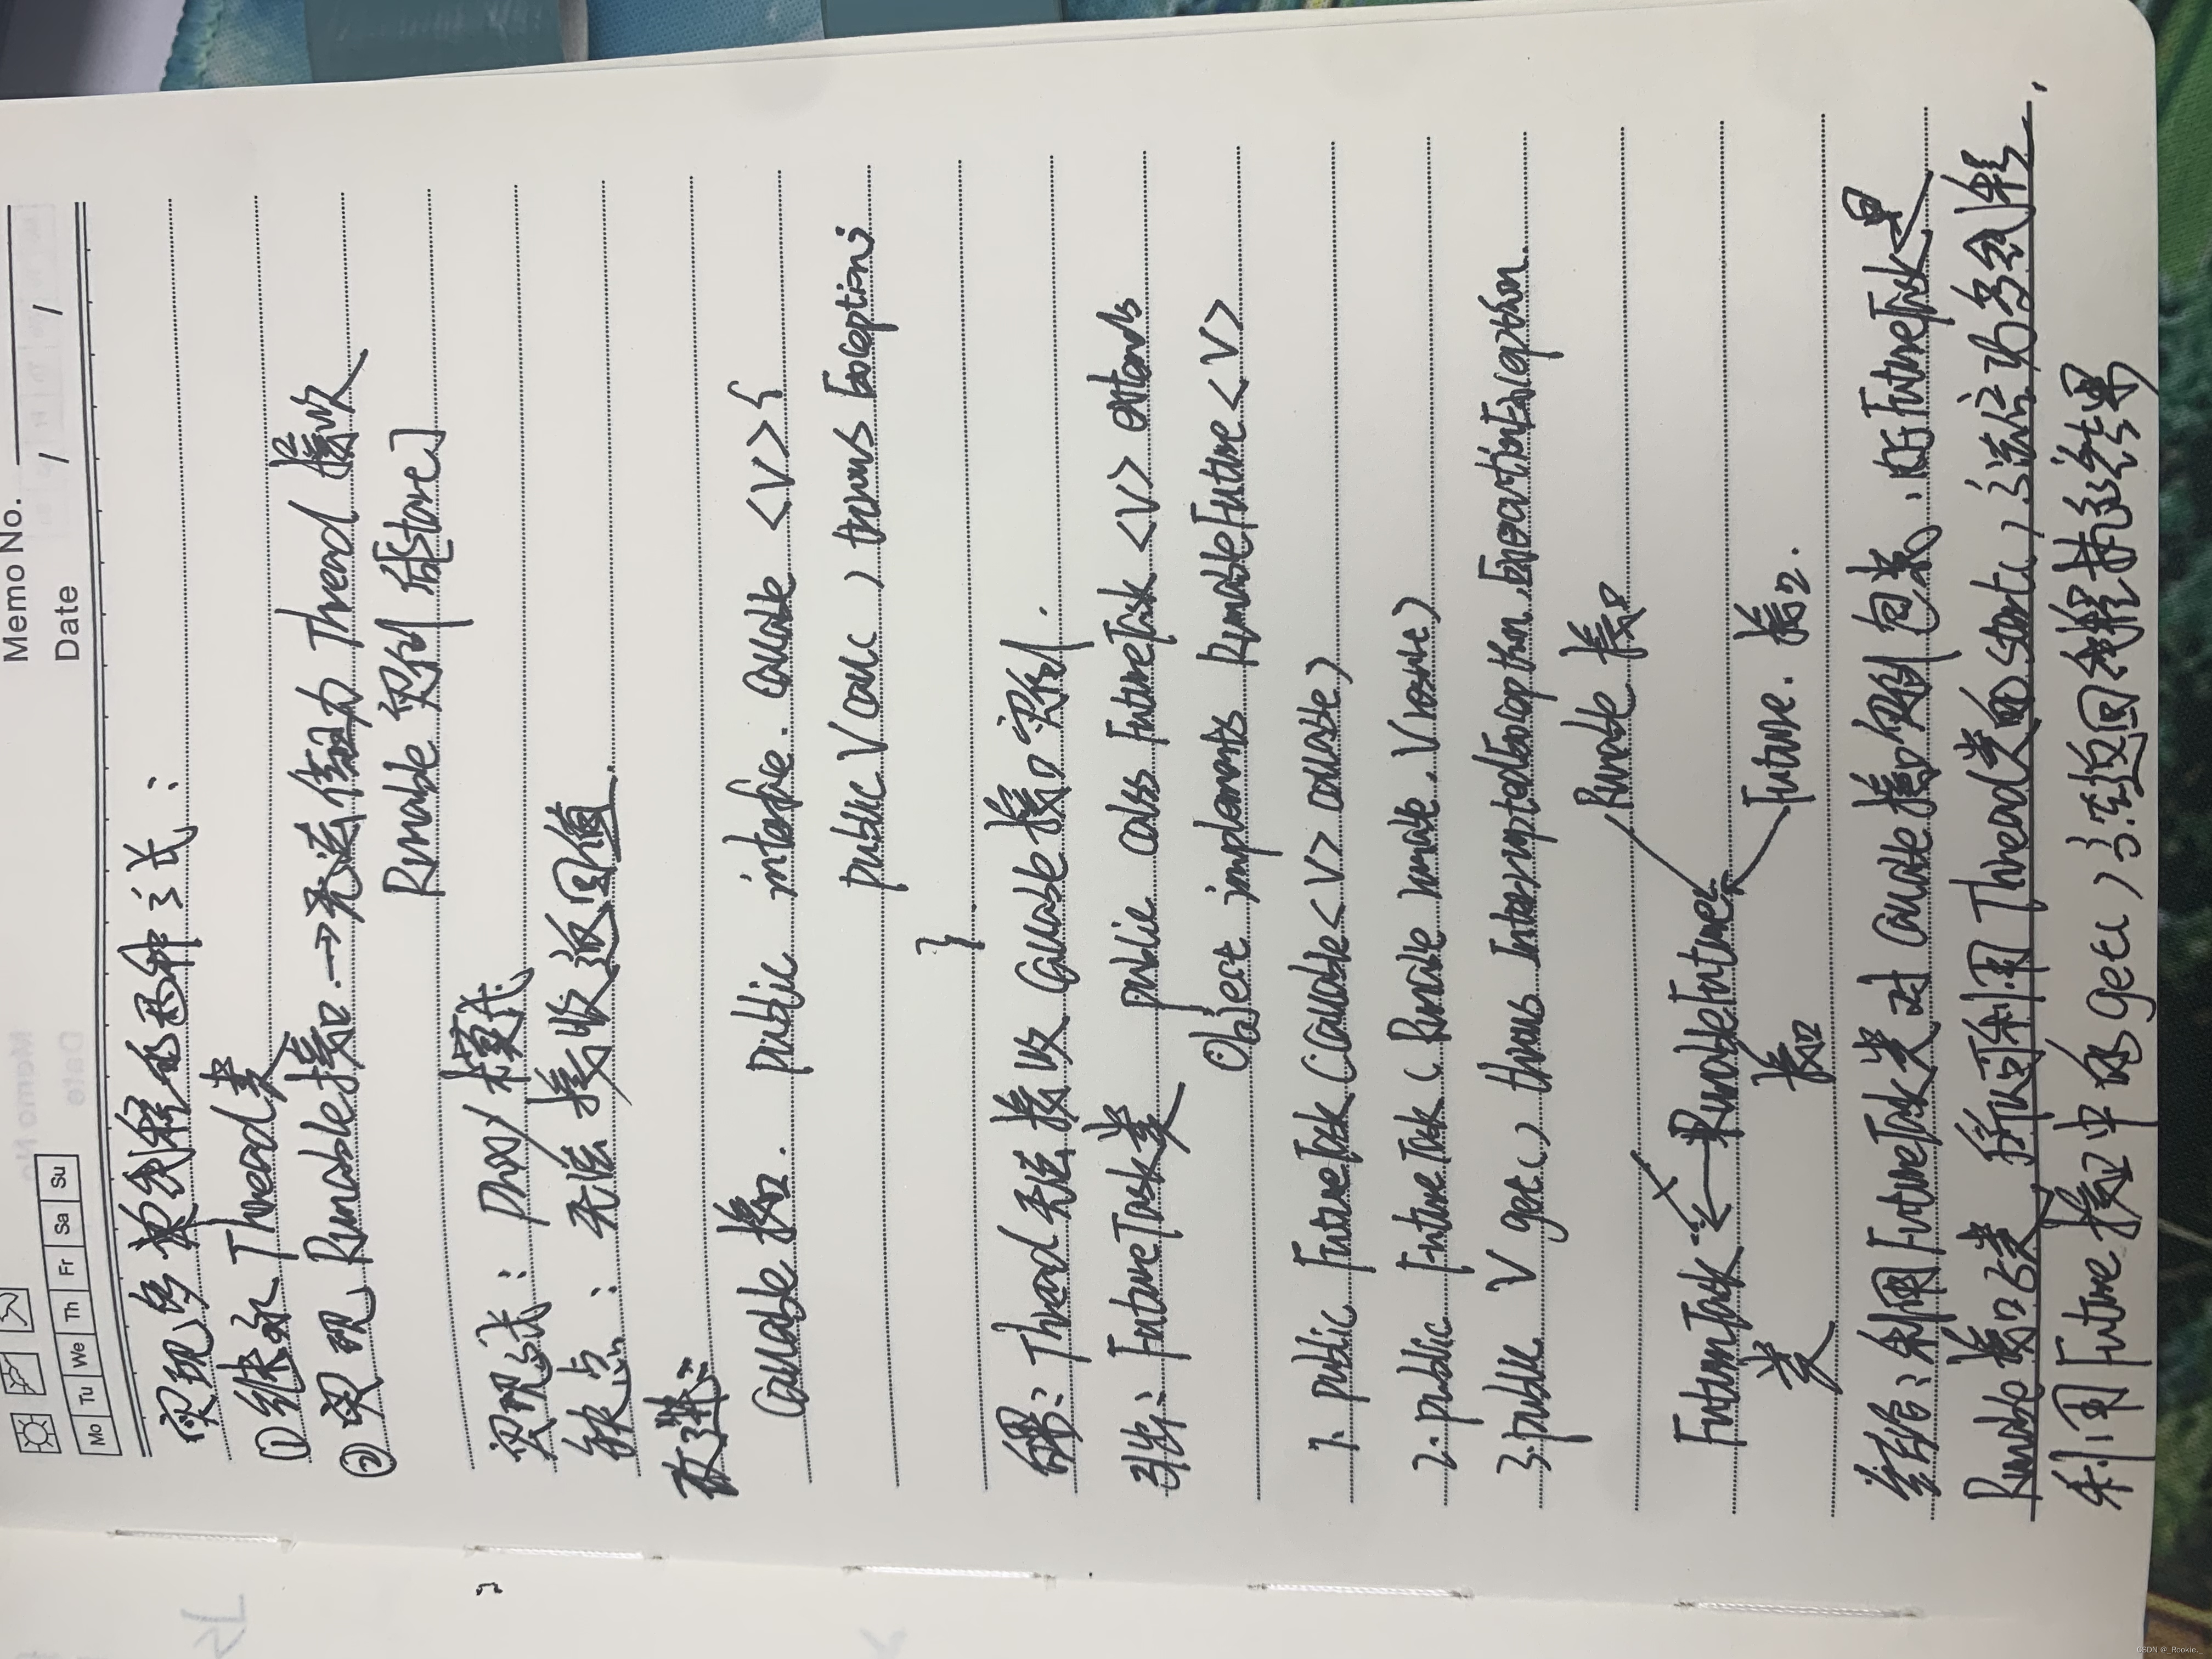 Memo No.
Mo Tu We Th Fr Sa Su
Date / /
实现多类线程的两种方式:
① 继承 Thread类
② 实现 Runable接口.→无法作为 Thread 接收
Runable 实例 后[start]
实现方式: Proxy 模式
缺点: 无法接收返回值.
改进:
Callable 接口. public interface. Callable <V> {
public V call() throws Exception;
}
问题: Thread 无法接收 Callable 接口实例.
引出: FutureTask类 public class FutureTask <V> extends
Object implements RunnableFuture <V>
1. public FutureTask (Callable <V> callable)
2. public FutureTask (Runable runable, V result)
3. public V get() throws InterruptedException, ExecutionException
Runable 接口
FutureTask ← RunableFuture
类 接口
Future. 接口.
结合: 利用 FutureTask类对 Callable接口实例包裹, 因FutureTask是
Runable接口子类, 所以可利用 Thread类的start()方法启动多线程,
利用 Future接口中的get()方法返回线程执行结果
CSDN @_Rookie._